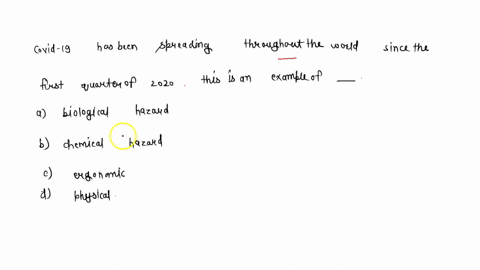 Covid-19 has been spreading throughout the world since the
first quarter of 2020. this is an example of ___.
a) biological hazard
b) chemical hazard
c) ergonomic
d) physical.